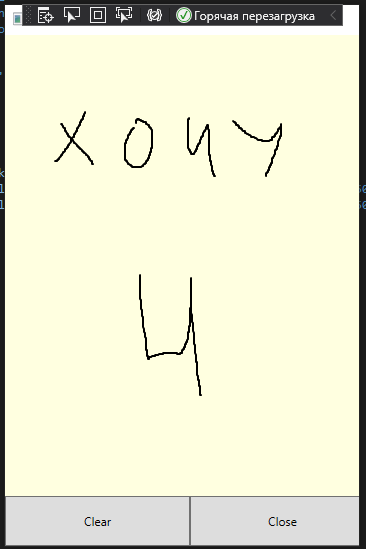 Горячая перезагрузка
хочу
ч
Clear
Close